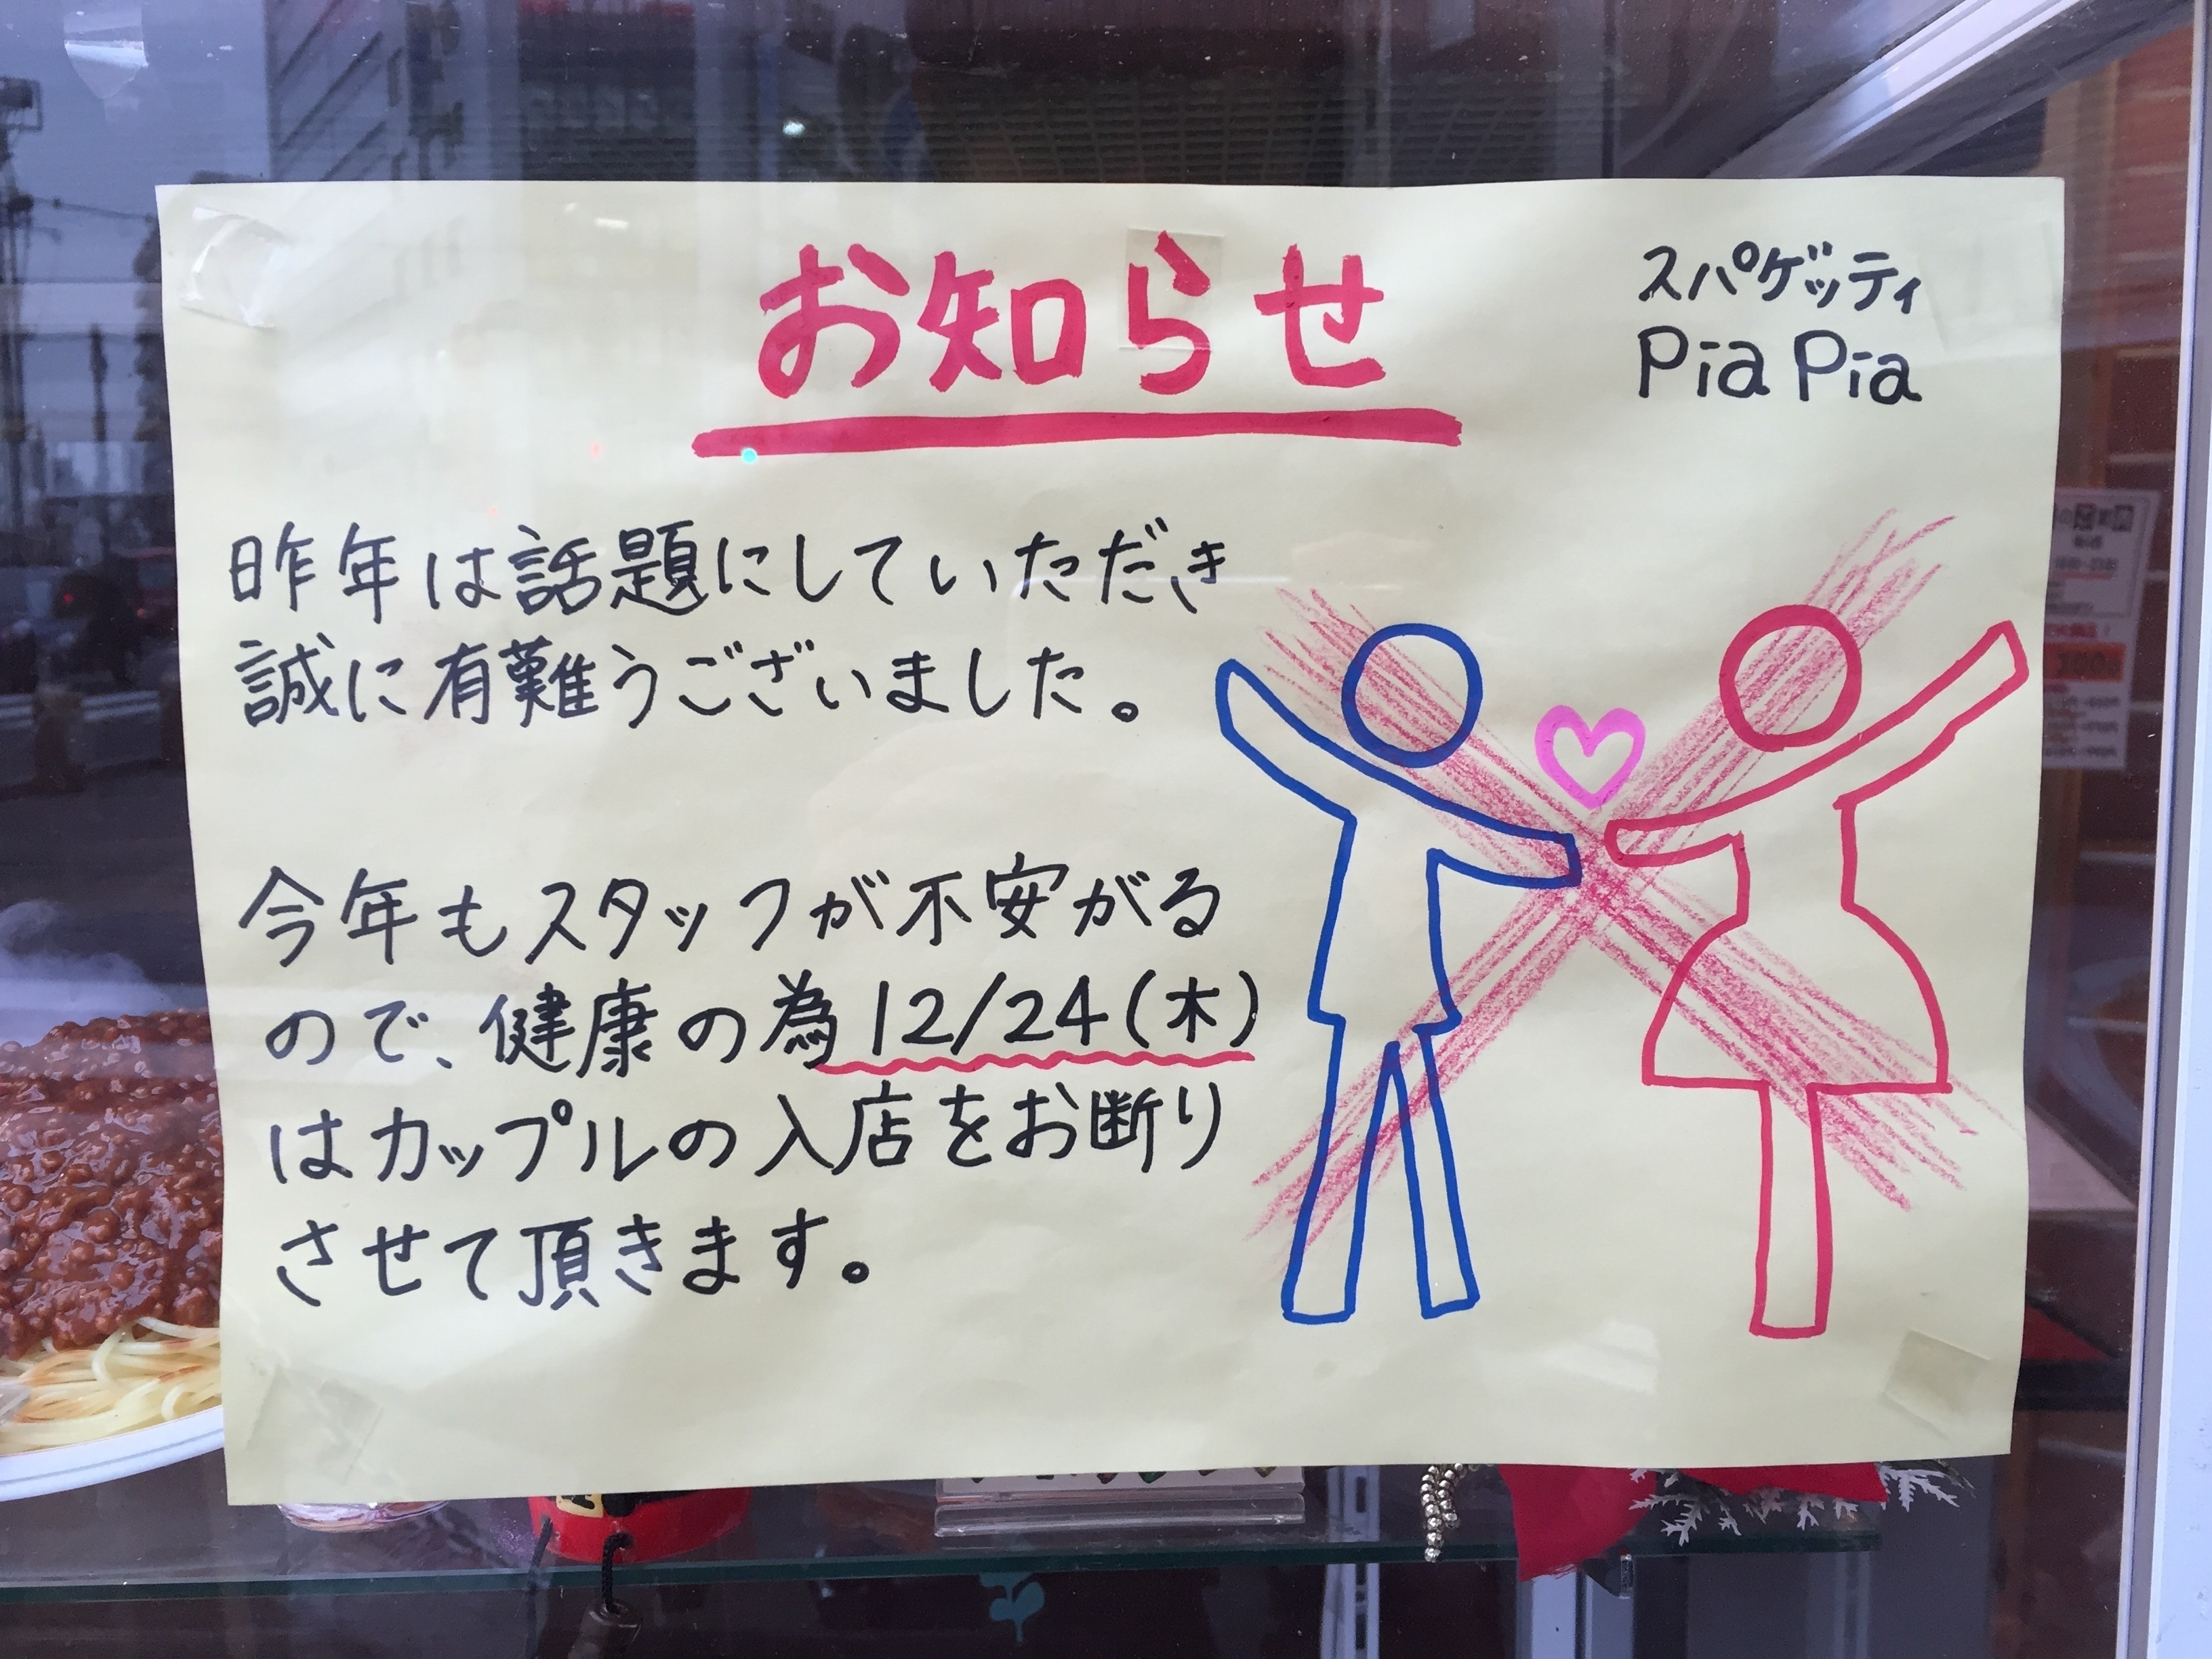 お知らせ
スパゲッティ
Pia Pia
昨年は話題にしていただき
誠に有難うございました。
今年もスタッフが不安がる
ので、健康の為12/24(木)
はカップルの入店をお断り
させて頂きます。